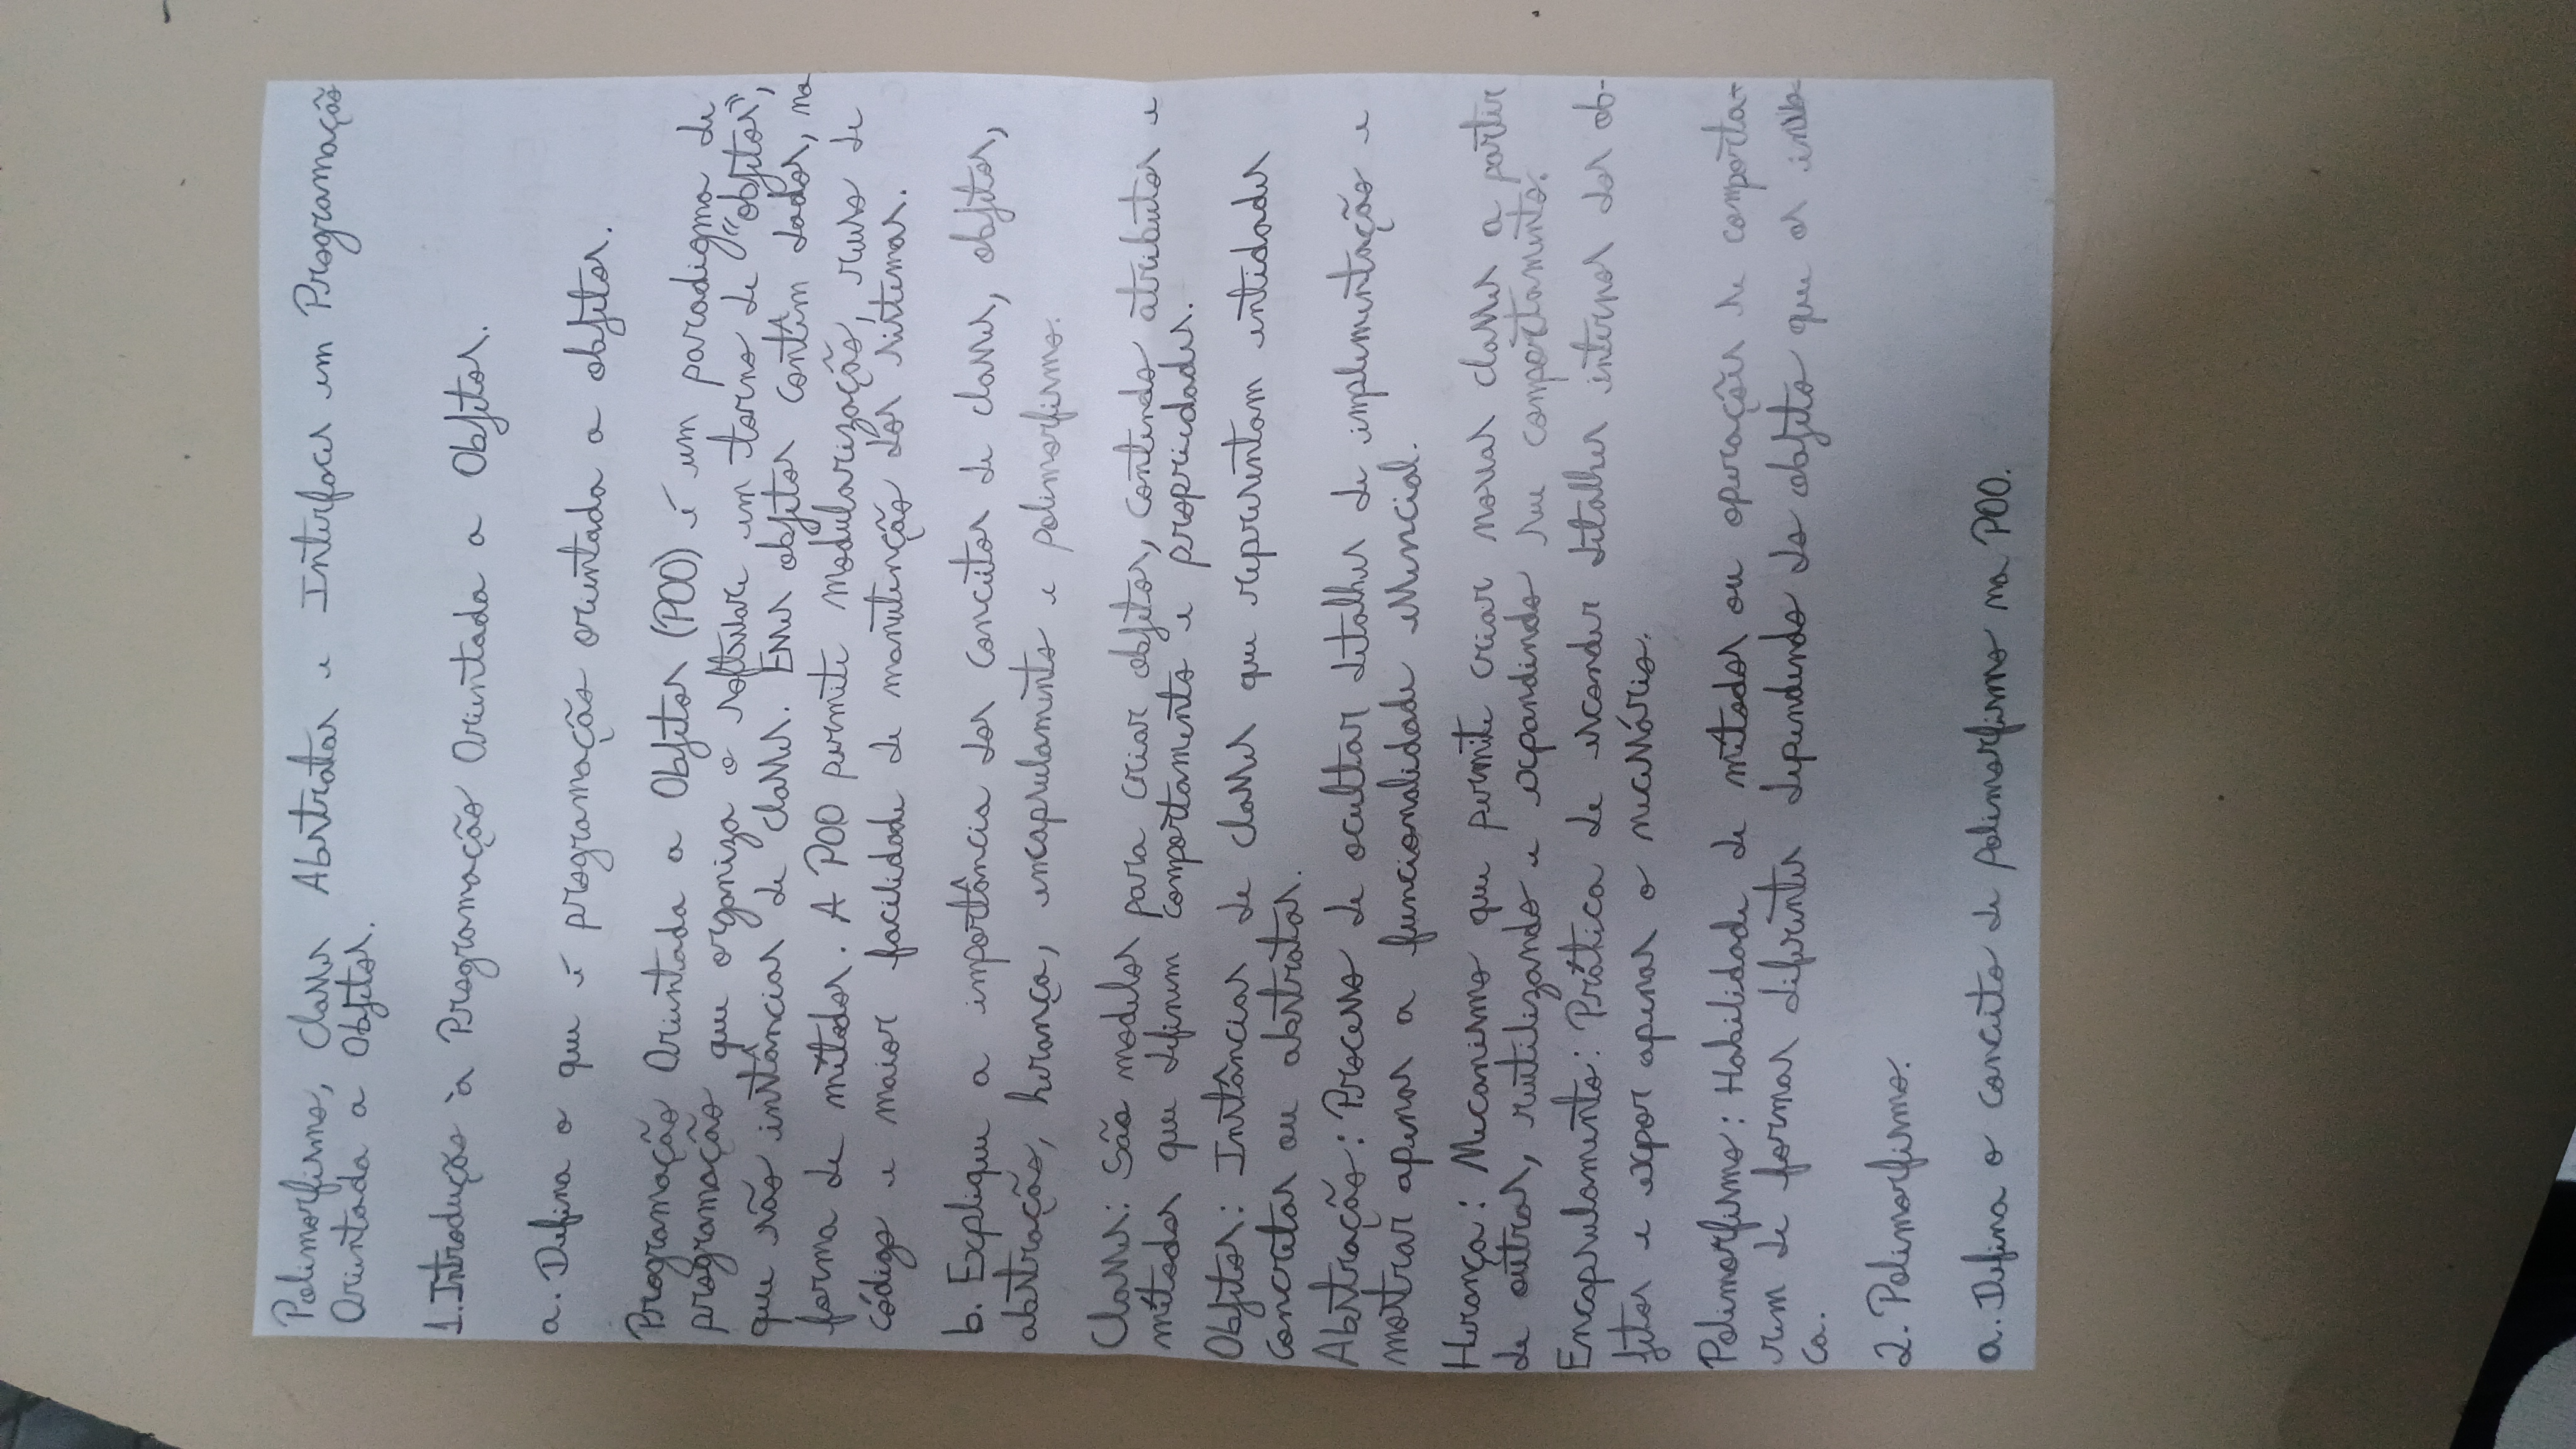 Polimorfismo, Classes Abstratas e Interfaces em Programação
Orientada a Objetos.
1. Introdução à Programação Orientada a Objetos.
a. Defina o que é programação orientada a objetos.
Programação Orientada a Objetos (POO) é um paradigma de
programação que organiza o software em torno de "objetos",
que são instâncias de classes. Esses objetos contêm dados, na
forma de métodos. A POO permite modularização, reuso de
código e maior facilidade de manutenção dos sistemas.
b. Explique a importância dos conceitos de classes, objetos,
abstração, herança, encapsulamento e polimorfismo.
Classes: São modelos para criar objetos, contendo atributos e
métodos que definem comportamento e propriedades.
Objetos: Instâncias de classes que representam entidades
concretas ou abstratas.
Abstração: Processo de ocultar detalhes de implementação e
mostrar apenas a funcionalidade essencial.
Herança: Mecanismo que permite criar novas classes a partir
de outras, reutilizando e expandindo seu comportamento.
Encapsulamento: Prática de esconder detalhes internos dos ob-
jetos e expor apenas o necessário.
Polimorfismo: Habilidade de métodos ou operações se comporta-
rem de formas diferentes dependendo do objeto que os invo-
ca.
2. Polimorfismo.
a. Defina o conceito de polimorfismo na POO.